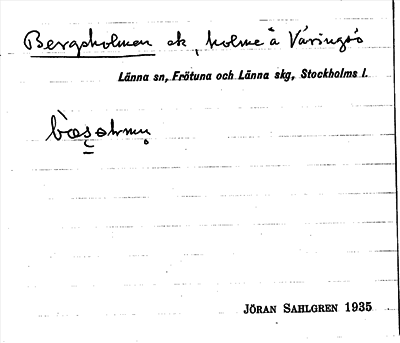 Bergsholmen ek, holme å Väringsö
Länna sn, Frötuna och Länna skg, Stockholms l.
JÖRAN SAHLGREN 1935